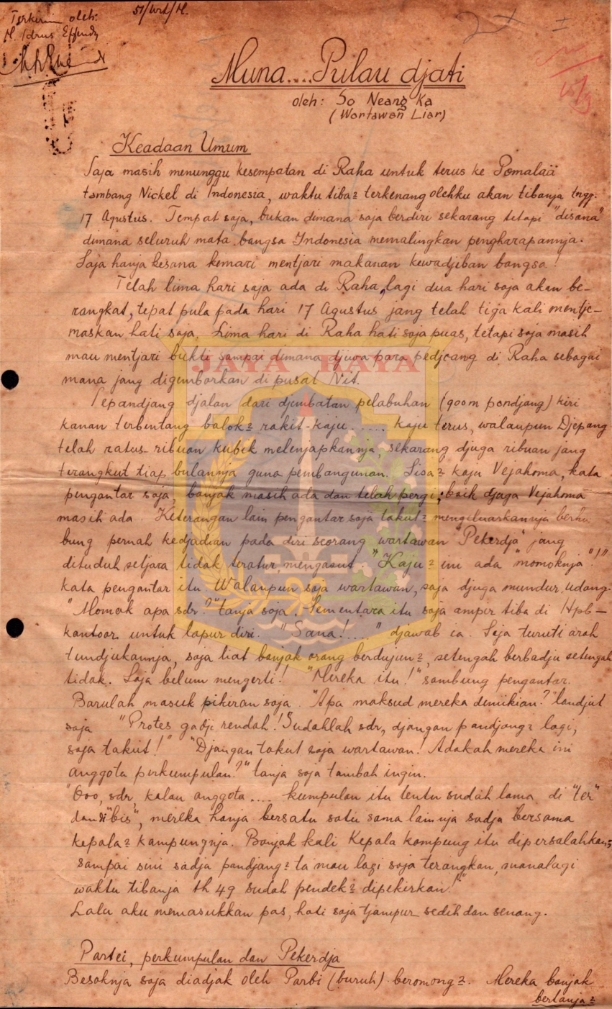 Terkirim oleh:
M. Idrus Effendy
51/Wrl/M.
Muna.... Pulau djati
oleh: So Neang Ka
(Wartawan Liar)
Keadaan Umum
Saja masih menunggu kesempatan di Raha untuk terus ke Pomalaä
tambang Nickel di Indonesia, waktu tiba2 terkenang olehku akan tibanja tngg.
17 Agustus. Tempat saja, bukan dimana saja berdiri sekarang tetapi "disana"
dimana seluruh mata bangsa Indonesia memalingkan pengharapannja.
Saja hanja kesana kemari mentjari makanan kewadjiban bangsa!
Telah lima hari saja ada di Raha, lagi dua hari saja akan be-
rangkat, tepat pula pada hari 17 Agustus jang telah tiga kali mentje-
maskan hati saja. Lima hari di Raha hati saja puas, tetapi saja masih
mau mentjari bukti sampai dimana djiwa para pedjoang di Raha sebagai
mana jang digemborkan di pusat Nit.
JAYA RAYA
Sepandjang djalan dari djembatan pelabuhan (900m pandjang) kiri
kanan terbentang balok2 rakit-kaju.... kaju terus, walaupun Djepang
telah ratus ribuan kubik melenjapkannja, sekarang djuga ribuan jang
terangkut tiap bulannja guna pembangunan. Sisa2 kaju Vejahoma, kata
pengantar saja banjak masih ada dan telah pergi, baik djuga Vejahoma
masih ada. Keterangan lain pengantar saja takut2 mengeluarkannja berhu
bung pernah kedjadian pada diri seorang wartawan "Pekerdja" jang
dituduh setjara tidak teratur mengasut. "Kaju2 ini ada "momoknja"!"
kata pengantar itu. Walaupun saja wartawan, saja djuga mundur udang.
"Momok apa sdr?" tanja saja. Sementara itu saja amper tiba di Hpb-
kantoor untuk lapur diri. "Sana!...." djawab ia. Saja turuti arah
tundjukannja, saja liat banjak orang berdujun2, setengah berbadju setengah
tidak. Saja belum mengerti! "Mereka itu!" sambung pengantar.
Barulah masuk pikiran saja. "Apa maksud mereka demikian?" landjut
saja. "Protes gadji rendah! Sudahlah sdr, djangan pandjang2 lagi,
saja takut!" "Djangan takut saja wartawan! Adakah mereka ini
anggota perkumpulan?" tanja saja tambah ingin.
"Ooo, sdr, kalau anggota.... kumpulan itu tentu sudah lama di "ter"
dan "bis", mereka hanja bersatu satu sama lainnja sadja bersama
kepala2 kampungnja. Banjak kali Kepala kampung itu dipersalahkan,
sampai sini sadja pandjang2 ta mau lagi saja terangkan, manalagi
waktu tibanja th 49 sudah pendek2 dipekerkan!"
Lalu aku memasukkan pas, hati saja tjampur sedih dan senang.
Partei, perkumpulan dan Pekerdja
Besoknja saja diadjak oleh Parbi (buruh) beromong2. Mereka banjak
bertanja2